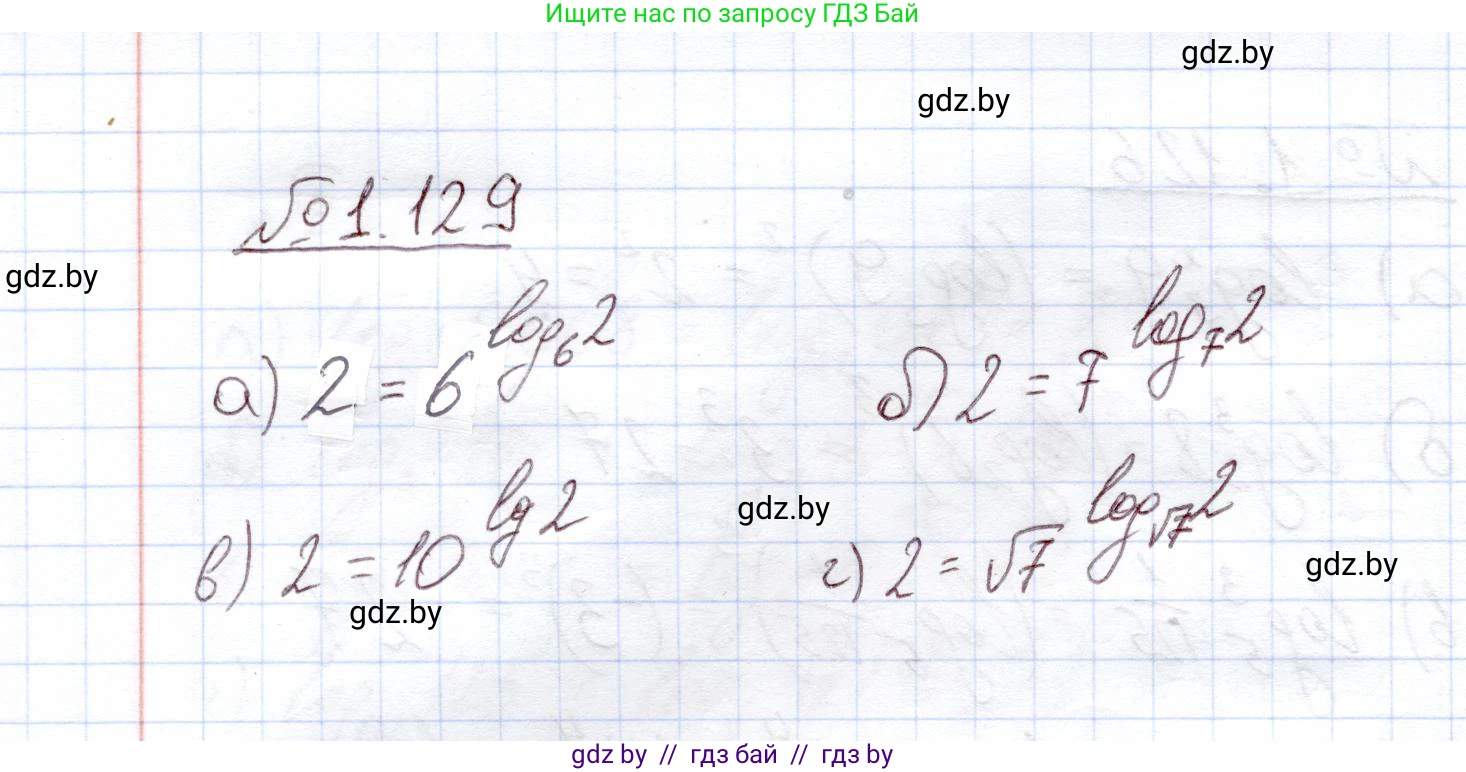 Ищите нас по запросу ГДЗ Бай
gdz.by
gdz.by
№ 1.129
gdz.by
а) 2 = 6^log₆2
б) 2 = 7^log₇2
gdz.by
в) 2 = 10^lg2
г) 2 = √7^log_√7 2
gdz.by
gdz.by
gdz by // гдз бай // гдз by